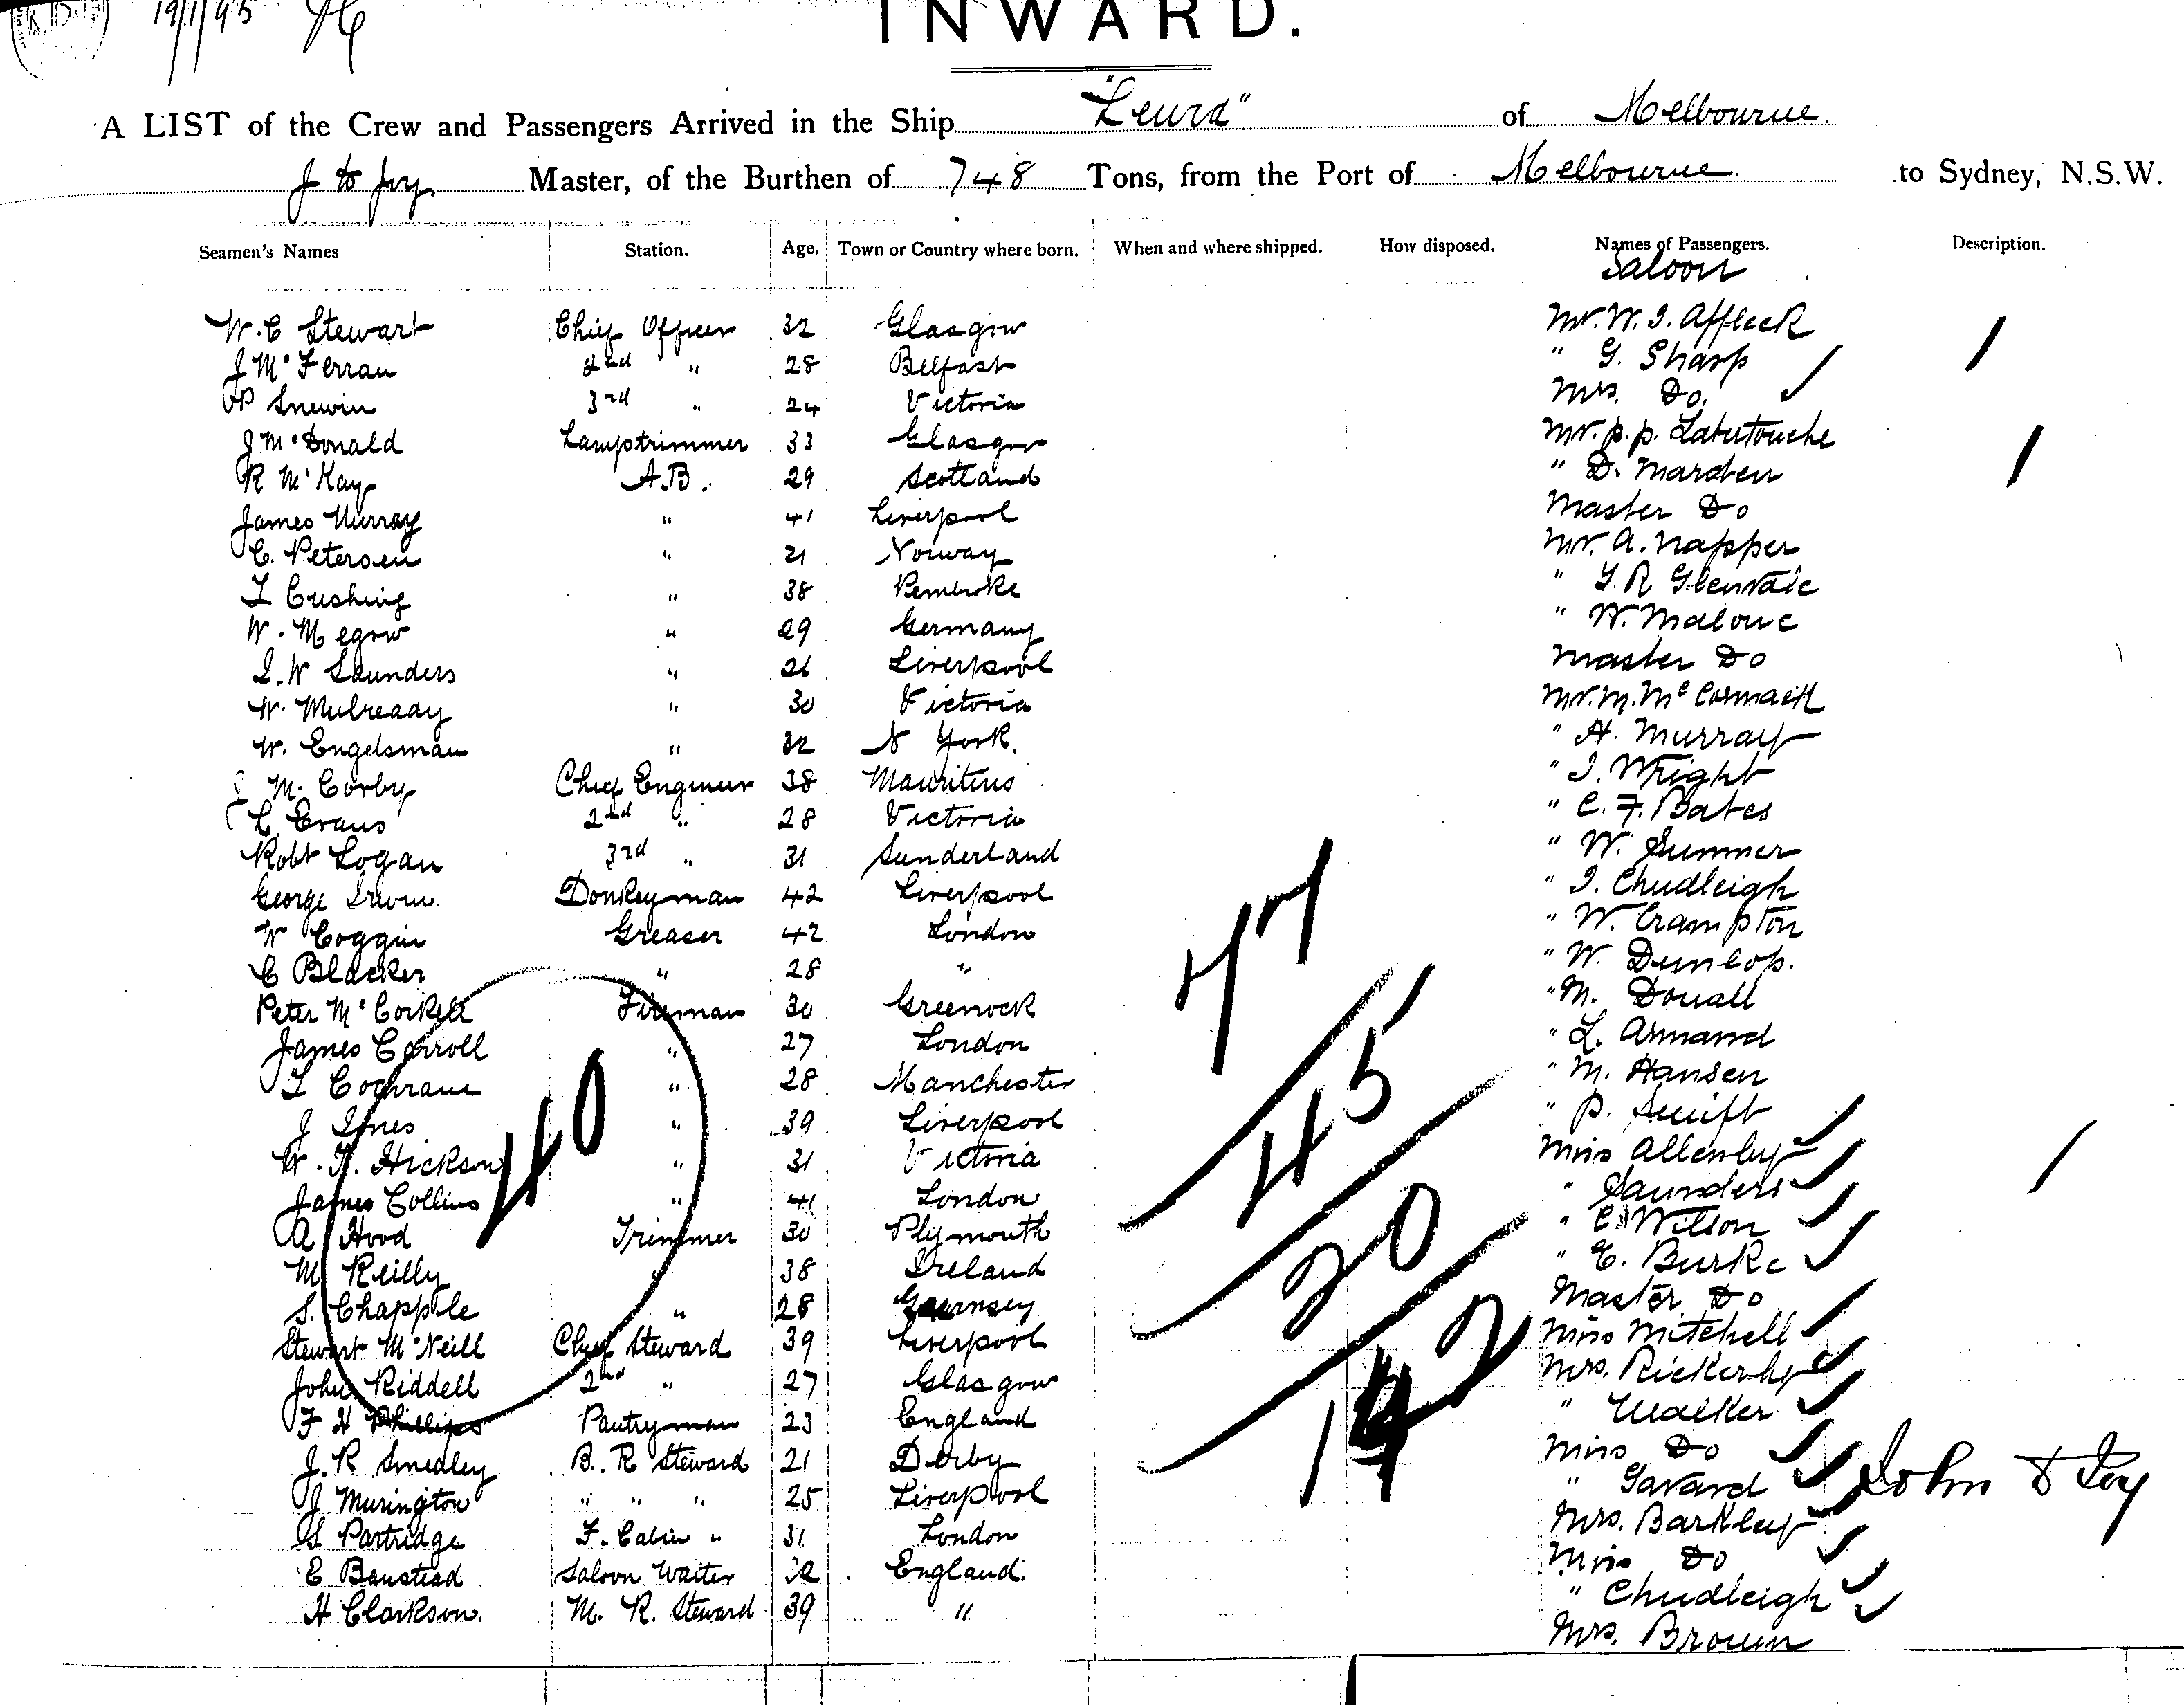 19/1/95
INWARD.
A LIST of the Crew and Passengers Arrived in the Ship "Leura" of Melbourne.
Master, of the Burthen of 748 Tons, from the Port of Melbourne. to Sydney, N.S.W.
Seamen's Names Station. Age. Town or Country where born. When and where shipped. How disposed. Names of Passengers. Description.
Saloon
W. C Stewart Chief Officer 32 Glasgow Mr. W. J. Affleck
J McFerran 2nd " 28 Belfast " G. Sharp
P Snewin 3rd " 24 Victoria Mrs. Do.
J McDonald Lamptrimmer 33 Glasgow Mr. P. P. Labertouche
R McKay A.B. 29 Scotland " D. Marden
James Murray " 41 Liverpool Master Do
C. Petersen " 21 Norway Mr. A. Napper
T Cushing " 38 Pembroke " G. R Glenvale
W. Megow " 29 Germany " W. Malone
J. W Saunders " 26 Liverpool Master Do
W. Mulready " 30 Victoria Mr. M. McCormack
W. Engelsman " 32 N York. " H. Murray
J M. Corby Chief Engineer 38 Mauritius " J. Wright
C. Evans 2nd " 28 Victoria " C. F. Bates
Robt Logan 3rd " 31 Sunderland " W. Sumner
George Irwin. Donkeyman 42 Liverpool " J. Chudleigh
W Coggin Greaser 42 London " W. Crampton
C Blacker " 28 " " W. Dunlop.
Peter McCorkell Fireman 30 Greenock " M. Douall
James Carroll " 27 London " L. Armand
T Cochrane " 28 Manchester " M. Hansen
J Jones " 39 Liverpool " P. Swift
W. H. Hickson " 31 Victoria Miss Allenby
James Collins " 41 London " Saunders
A Hood Trimmer 30 Plymouth " C. Wilson
M Reilly " 38 Ireland " E. Burke
S. Chapple " 28 Guernsey Master Do
Stewart McNeill Chief Steward 39 Liverpool Miss Mitchell
John Riddell 2nd " 27 Glasgow Mrs. Rickerby
F H Phillips Pantryman 23 England " Walker
J. R Smedley B. R Steward 21 Derby Miss Do
J Murington " " " 25 Liverpool " Gavard
G Partridge F. Cabin " 31 London Mrs. Barkley
E Banstead Saloon Waiter 32 England. Miss Do
H Clarkson. M. R. Steward 39 " " Chudleigh
Mrs. Brown
40
47
45
20
John T Joy